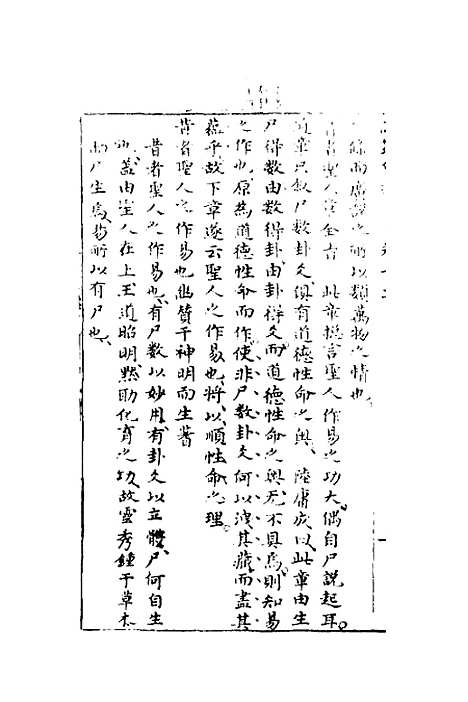 餘而廣說之所以類萬物之情也
昔者聖人章全旨 此章摠言聖人作易之功大偶自尸說起耳
章只叙尸數卦爻俱有道德性命之奧陸庸成曰此章由生
尸得數由數得卦由卦得爻而道德性命之奧无不具焉則知易
之作也原為道德性命而作使非尸數卦爻何以洩其藏而盡其
蘊乎故下章遂云聖人之作易也將以順性命之理
昔者聖人之作易也幽贊于神明而生蓍
昔者聖人之作易也有尸數以妙用有卦爻以立體尸何自生
也蓋由聖人在上王道昭明默助化育之功故靈秀鍾于草木
而尸生焉易所以有尸也